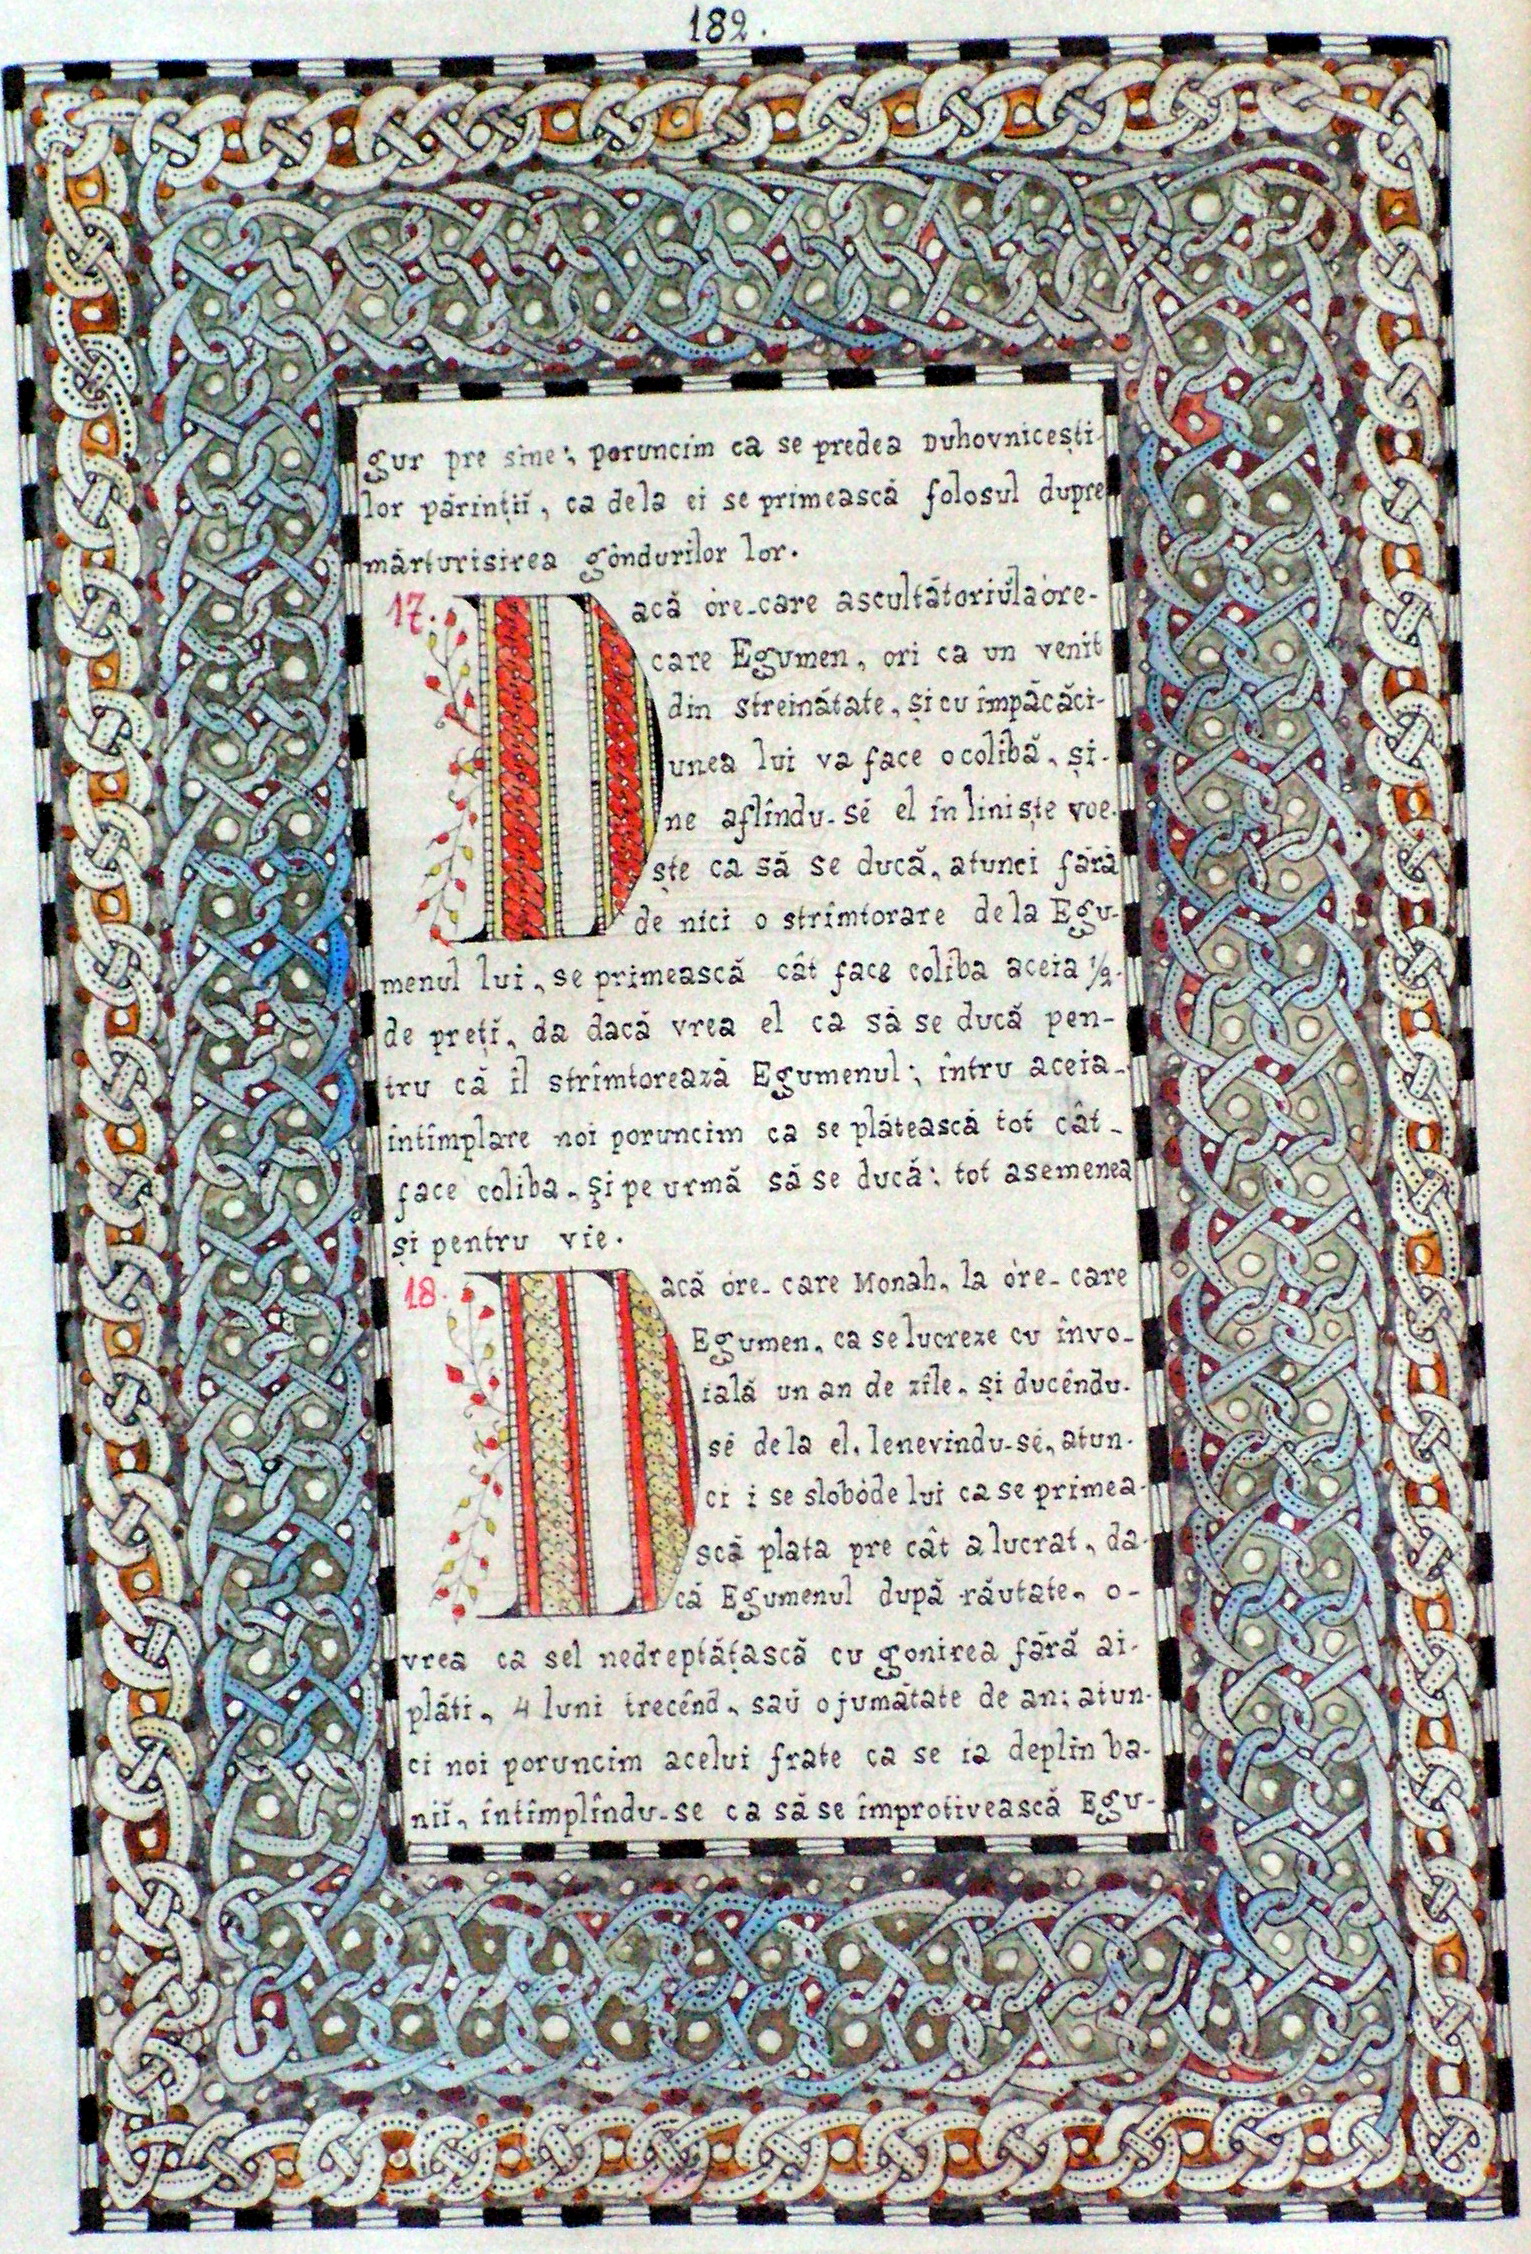 182.
gur pre sine; poruncim ca se predea Duhovnicești-
lor părinții, ca dela ei se primească folosul dupre
mărturisirea gôndurilor lor.
17. Dacă óre-care ascultătoriŭ la óre-
care Egumen, ori ca un venit
din streinătate, și cu împăcăci-
unea lui va face o colibă, și-
ne aflîndu-sé el în liniște voe-
ște ca să se ducă, atunci fără
de nici o strîmtorare dela Egu-
menul lui, se primească cât face coliba aceia ½.
de preți, da dacă vrea el ca să se ducă pen-
tru că îl strîmtorează Egumenul; întru aceia-
întîmplare noi poruncim ca se plătească tot cât-
face coliba, și pe urmă să se ducă; tot asemenea
și pentru vie.
18. Dacă óre-care Monah, la óre-care
Egumen, ca se lucreze cu învo-
ială un an de zîle, și ducêndu-
sé dela el, lenevindu-sé, atun-
ci i se slobóde lui ca se primea-
scă plata pre cât a lucrat, da-
că Egumenul după răutate, o-
vrea ca sel nedreptățască cu gonirea fără ai-
plăti, 4 luni trecênd, saŭ o jumătate de an; atun-
ci noi poruncim acelui frate ca se ia deplin ba-
nii, întîmplîndu-se ca să se împrotivească Egu-